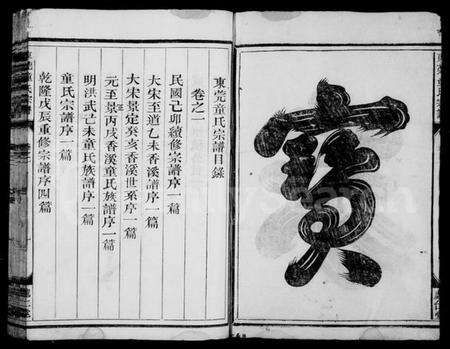 寳
東莞童氏宗譜目錄
卷之一
民國己卯續修宗譜序一篇
大宋至道乙未香溪譜序一篇
大宋景定癸亥香溪世系序一篇
元至景丙戌香溪童氏族譜序一篇
明洪武己未童氏族譜序一篇
童氏宗譜序一篇
乾隆戊辰重修宗譜序四篇